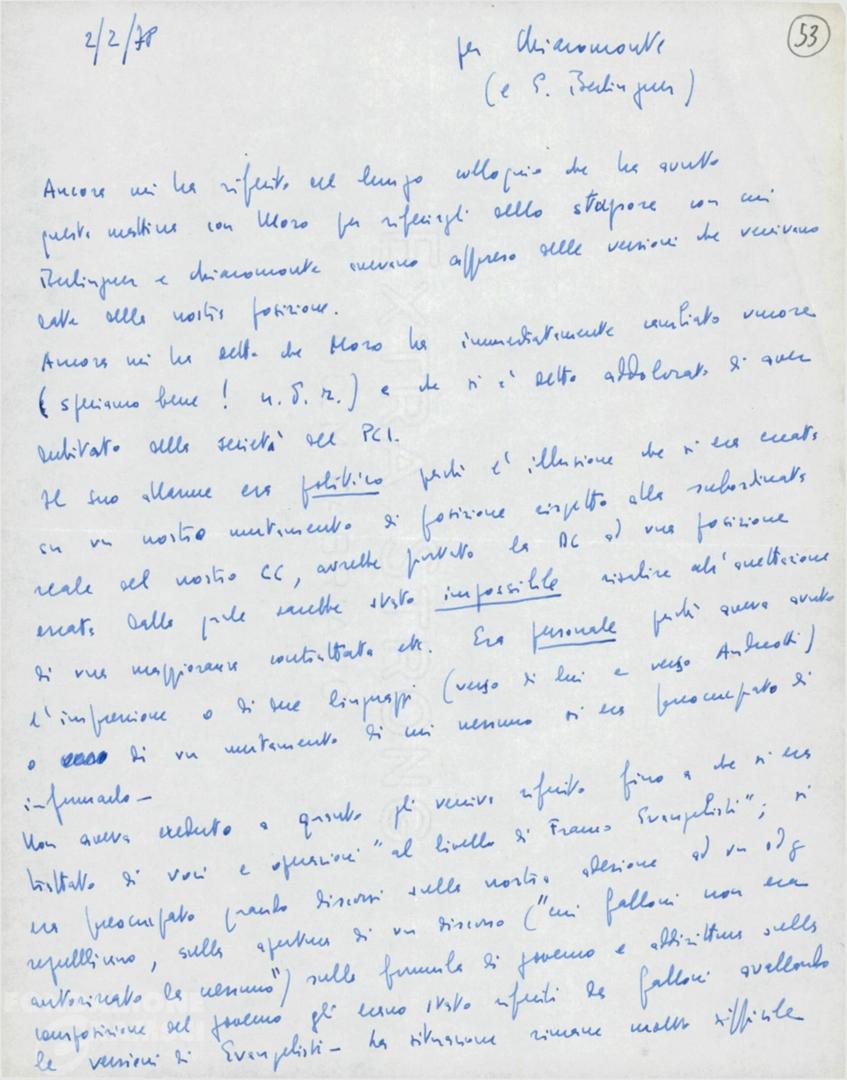 2/2/78
53
per Chiaromonte
(e E. Berlinguer)
Ancora mi ha riferito del lungo colloquio che ha avuto
questa mattina con Moro per riferirgli dello stupore con cui
Berlinguer e Chiaromonte avevano appreso delle versioni che venivano
date della nostra posizione.
Ancora mi ha detto che Moro ha immediatamente cambiato umore
(speriamo bene! n.d.r.) e che si è detto addolorato di aver
dubitato della serietà del PCI.
Il suo allarme era politico perché l'illusione che si era creata
su un nostro mutamento di posizione rispetto alla subordinata
reale del nostro CC, avrebbe portato la DC ad una posizione
errata dalla quale sarebbe stato impossibile risalire all'accettazione
di una maggioranza contrattata etc. Era personale perché aveva avuto
l'impressione o di due linguaggi (verso di lui e verso Andreotti)
o di un mutamento di cui nessuno si era preoccupato di
informarlo –
Non aveva creduto a quanto gli veniva riferito fino a che si era
trattato di voci e operazioni "al livello di Franco Evangelisti"; si
era preoccupato quando discorsi sulla nostra adesione ad un odg
repubblicano, sulla apertura di un discorso ("cui Galloni non era
autorizzato da nessuno") sulla formula di governo e addirittura sulla
composizione del governo gli erano stato riferiti da Galloni avallando
le versioni di Evangelisti – La situazione rimane molto difficile
FONDAZIONE GRAMSCI
EXTRA STRONG